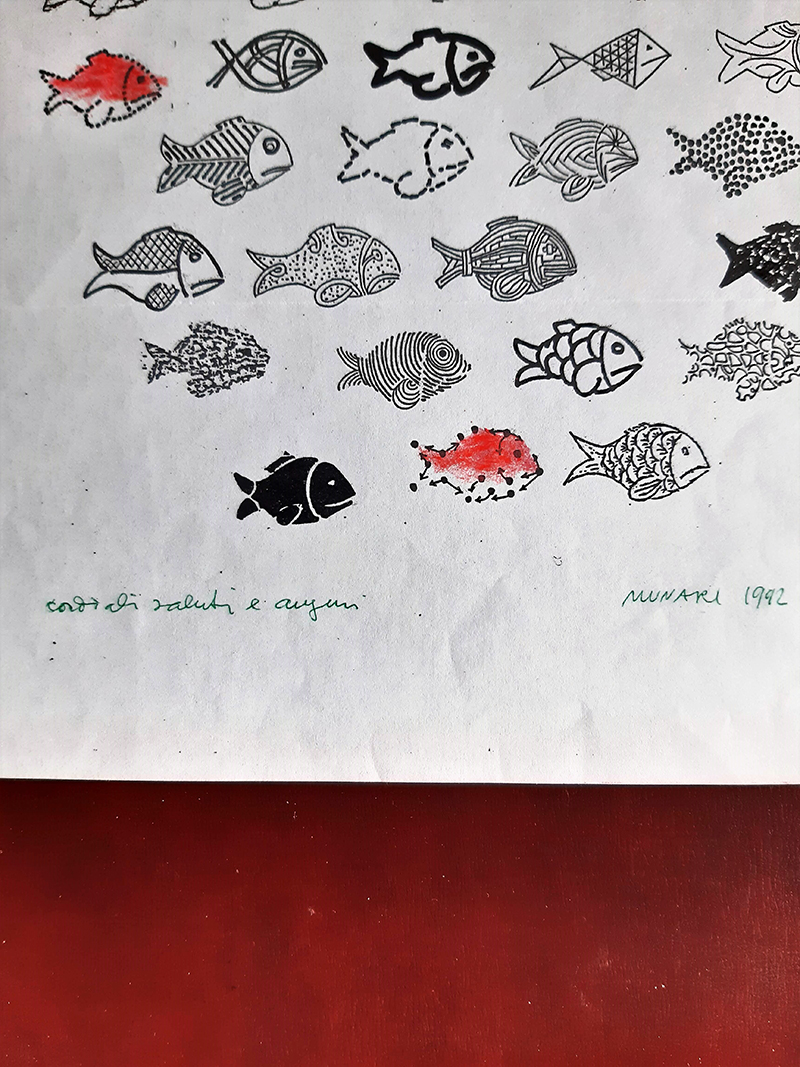 cordiali saluti e auguri
MUNARI 1992